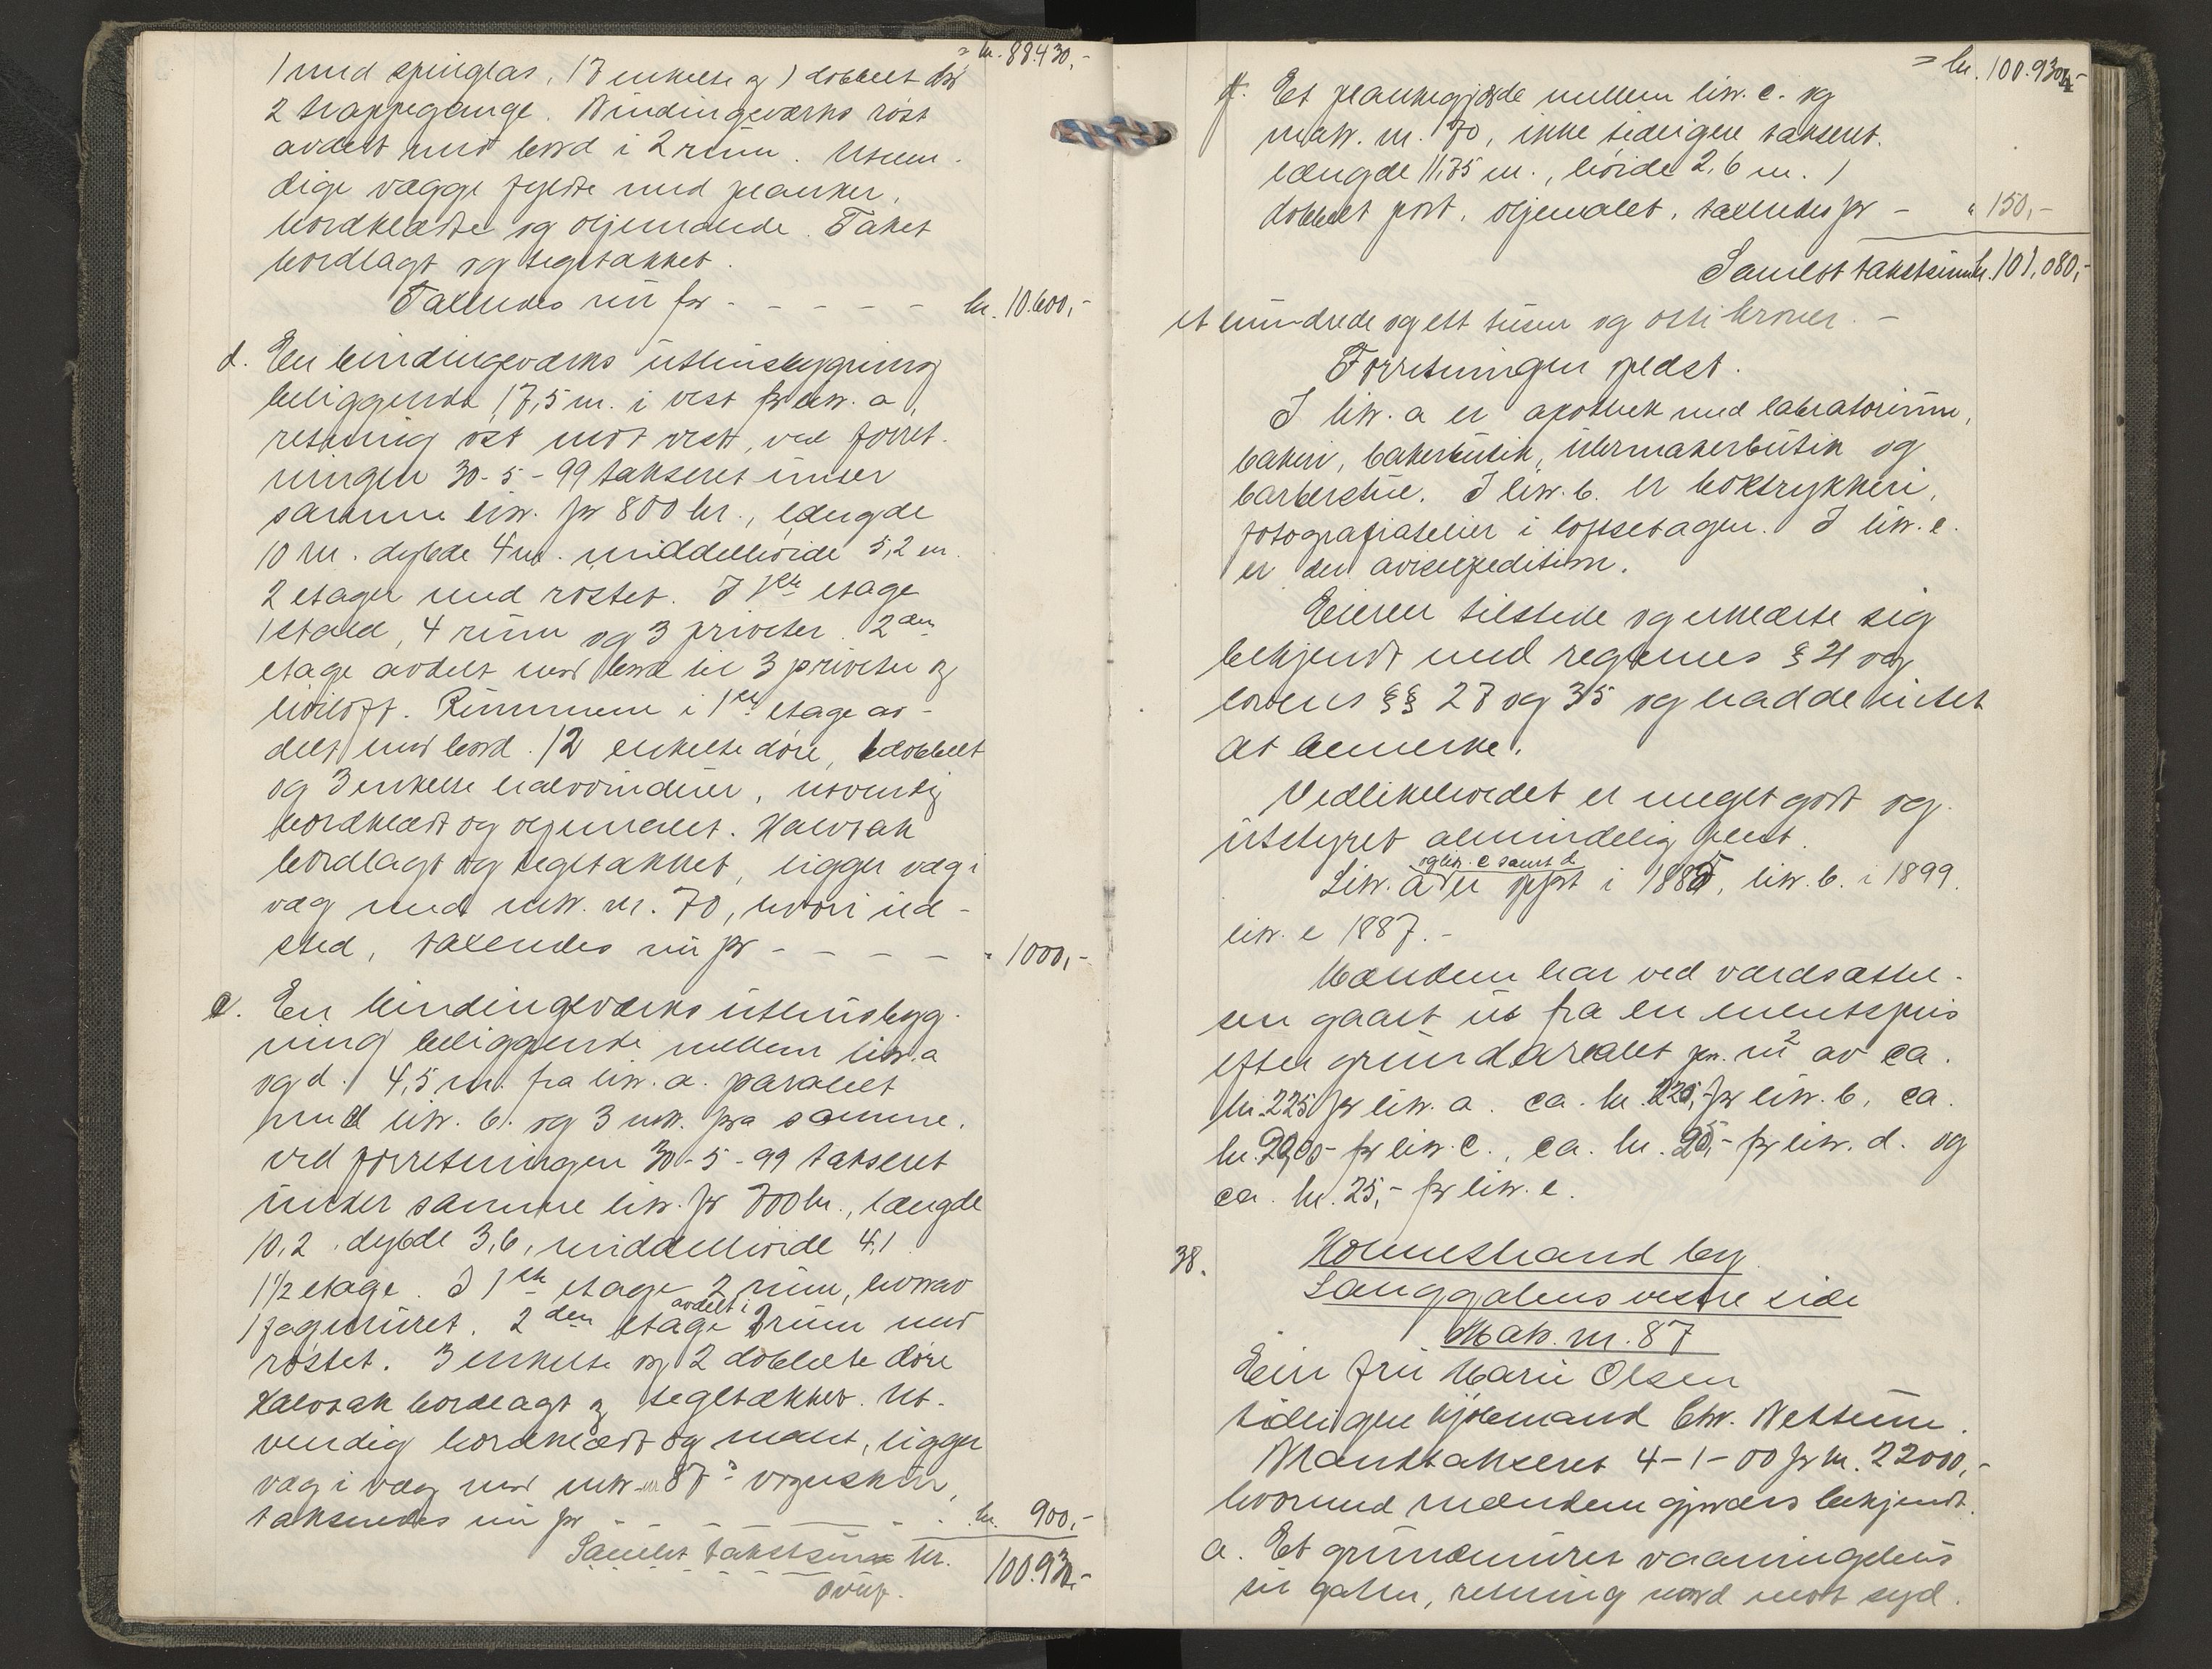 = kr. 88.430,-
1 med speilglas, 17 enkelte og 1 dobbelt dør
2 trappegange. Bindingsværks røst
avdelt med bord i 2 rum. Utven-
dige vægge fyldte med planker,
bordklædte og oljemalede. Taket
bordlagt og teglstækket.
Taxeredes nu for - - - - - kr. 10.600,-
d. En bindingsværks uthusbygning
beliggende 17,5 m. i vest for litr. a,
retning øst mot vest, ved forret-
ningen 30-5-99 takseret under
samme litr. for 800 kr., længde
10 m. dybde 4 m. middelhøide 5,2 m.
2 etager med røstet. I 1ste etage
1 stald, 4 rum og 3 priveter. 2den
etage avdelt med bord til 3 priveter og
høiloft. Rummene i 1ste etage av-
delt med bord. 12 enkelte døre, 1 dobbelt
og 3 enkelte halvvinduer, utvendig
bordklædt og oljemalet. Halvtak
bordlagt og teglstækket, ligger væg i
væg med mtr. nr. 70, hvori ild-
sted, taxeredes nu for - - - - " 1000,-
e. En bindingsværks uthusbyg-
ning beliggende mellem litr. a
og d. 4,5 m. fra litr. a. paralelt
med litr. b. og 3 m. fra samme.
ved forretningen 30-5-99 takseret
under samme litr. for 700 kr., længde
10,2. dybde 3,6, middelhøide 4,1
1 1/2 etage. I 1ste etage 2 rum, hvorav
1 fagmuret. 2den etage avdelt i 2 rum med
røstet. 3 enkelte og 2 dobbelte døre
Halvtak bordlagt og teglstækket. Ut-
vendig bordklædt og malet, ligger
væg i væg med mtr. nr. 87's vognskur,
takseredes nu for - - - - kr. 900,-
Samlet takstsum kr. 100.930,-
overf.
= kr. 100.930,-
f. Et plankegjærde mellem litr. c. og
matr. nr. 70, ikke tidligere takseret.
længde 11,35 m., høide 2,6 m. 1
dobbelt port, oljemalet, taxeredes for - " 150,-
Samlet takstsum kr. 101,080,-
et hundrede og ett tusen og otti kroner. -
Forretningen sledst.
I litr. a er apothek med labratorium,
bakeri, bakerbutik, urmakerbutik og
barberstue. I litr. b. er boktrykkeri,
fotografiatelier i loftsetagen. I litr. c.
er der avisexpedition.
Eieren tilstede og erklærte sig
bekjendt med reglernes § 21 og
lovens §§ 27 og 35 og hadde intet
at bemerke.
Vedlikeholdet er meget godt og
utstyret almindelig pent.
og litr. c samt d
Litr. a er opført i 1885, litr. b. i 1899.
litr. e 1887.-
Mændene har ved værdsættel-
sen gaaet ut fra en enhetspris
efter grundarealet pr. m2 av ca.
kr. 225 for litr. a. ca. kr. 220,- for litr. b, ca.
kr. 90,00- for litr. c., ca. kr. 25,- for litr. d. og
ca. kr. 25,- for litr. e.
38.
Holmestrand by
Langgatens vestre side
Matr. nr. 87
Eier fru Marie Olsen
tidligere kjøbmand Chr. Wettum.
Brandtakseret 4-1-00 for kr. 22000,-
hvormed mændene gjordes bekjendt.
a. Et grundmuret vaaningshus
til gaten, retning nord mot syd.